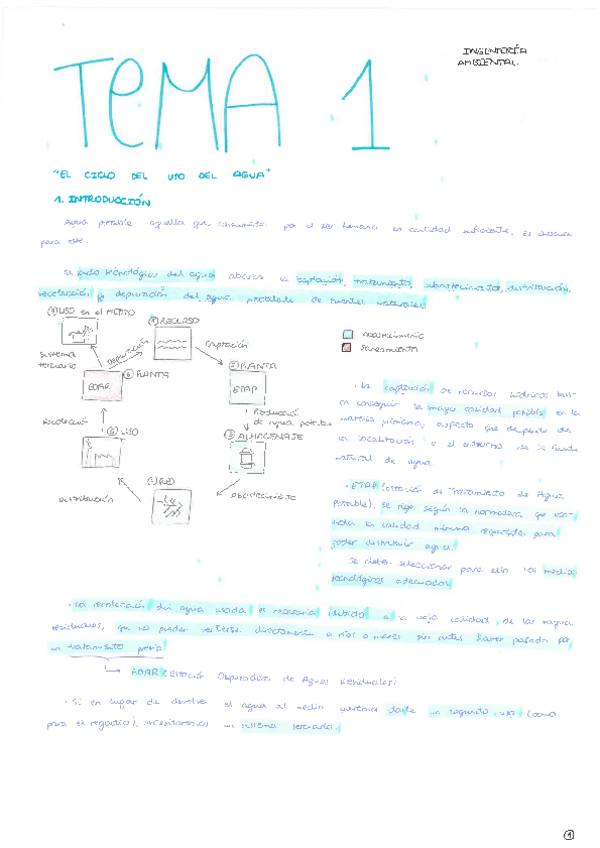 INGENIERÍA
AMBIENTAL.
TEMA 1
"EL CICLO DEL USO DEL AGUA"
1. INTRODUCCIÓN
Agua potable: aquella que, consumida por el ser humano en cantidad suficiente, es
para este.
El ciclo tecnológico del agua abarca la captación, tratamiento, abastecimiento, distribución,
recolección y depuración del agua de fuentes naturales.
USO en el MEDIO
① RECURSO
abastecimiento
saneamiento
Sistema
terciario
Depuración
captación
⑥ PLANTA
EDAR
② PLANTA
ETAP
Producción
de agua potable
③ ALMACENAJE
Abastecimiento
④ RED
Distribución
⑤ USO
Recolección
· La captación de recursos hídricos
conseguir la mayor calidad posible en la
materia prima, aspecto que depende de
la fuente
natural de agua.
· ETAP (estación de Tratamiento de Agua
Potable), se rige según la normativa que
la calidad mínima requerida para
poder distribuir agua.
Se deben seleccionar para ello los medios
tecnológicos adecuados
· La recolección del agua usada es necesaria debido a la baja calidad de las aguas
residuales, que no pueden verterse directamente a ríos o mares sin antes haber pasado por
un tratamiento previo
EDAR (Estación Depuradora de Aguas Residuales)
· Si en lugar de devolver el agua al medio queremos darle un segundo uso (como
para el regadío), necesitaremos un sistema terciario.
①